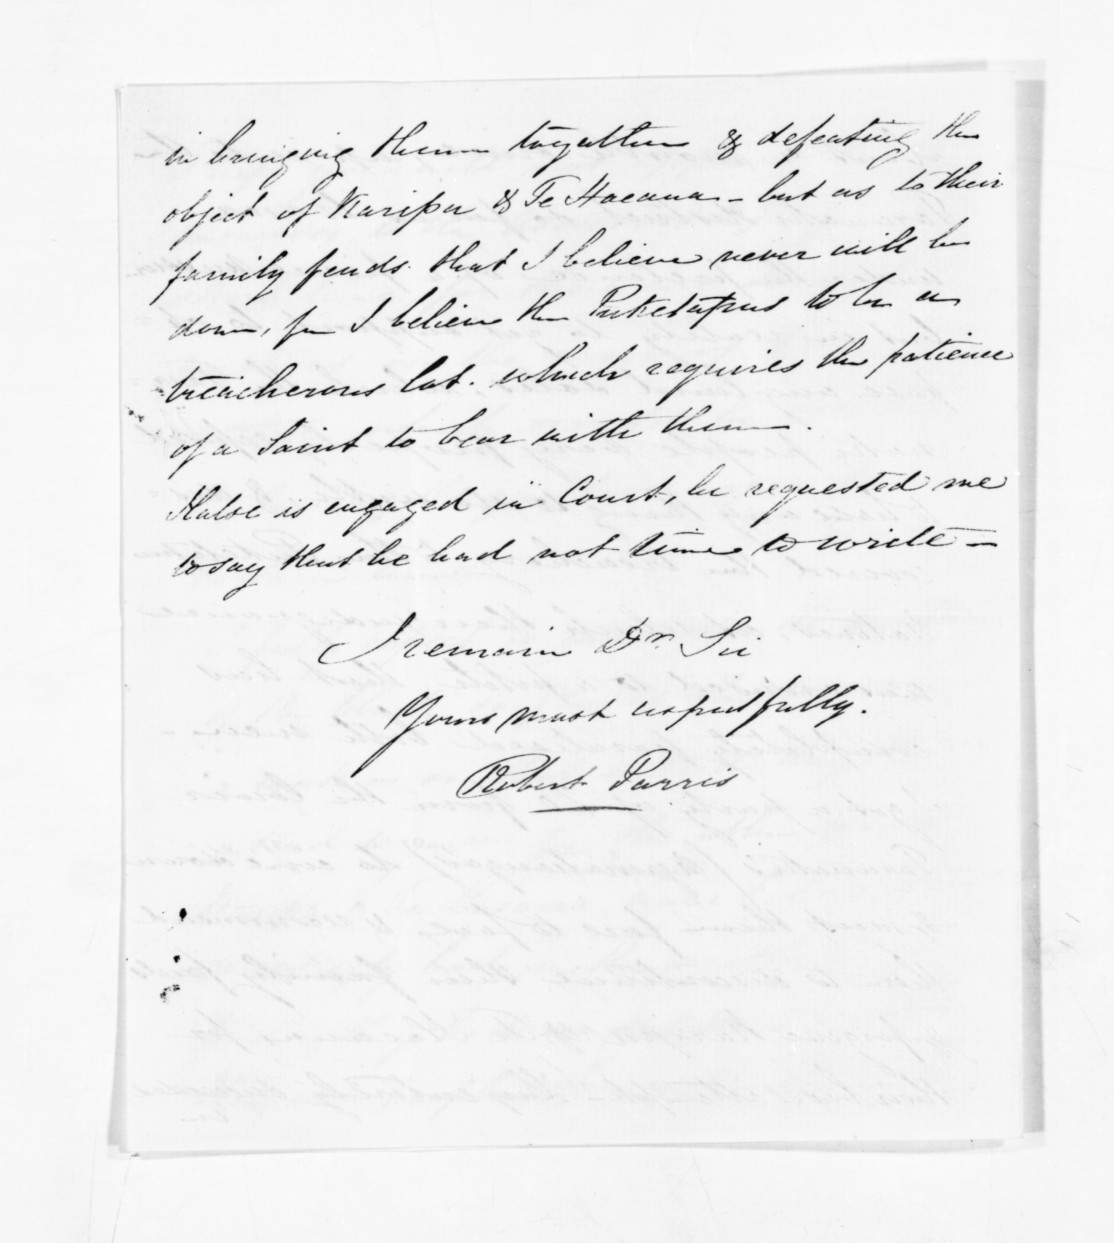 in bringing them together & defeating the
object of Karipa & Te Hacana - but as to their
family feuds. that I believe never will be
done, for I believe the Puketapus to be a
treacherous lot. which requires the patience
of a Saint to bear with them.
Halse is engaged in Court, he requested me
to say that he had not time to write -
I remain Dr. Sir
Yours most respectfully.
Robert Parris